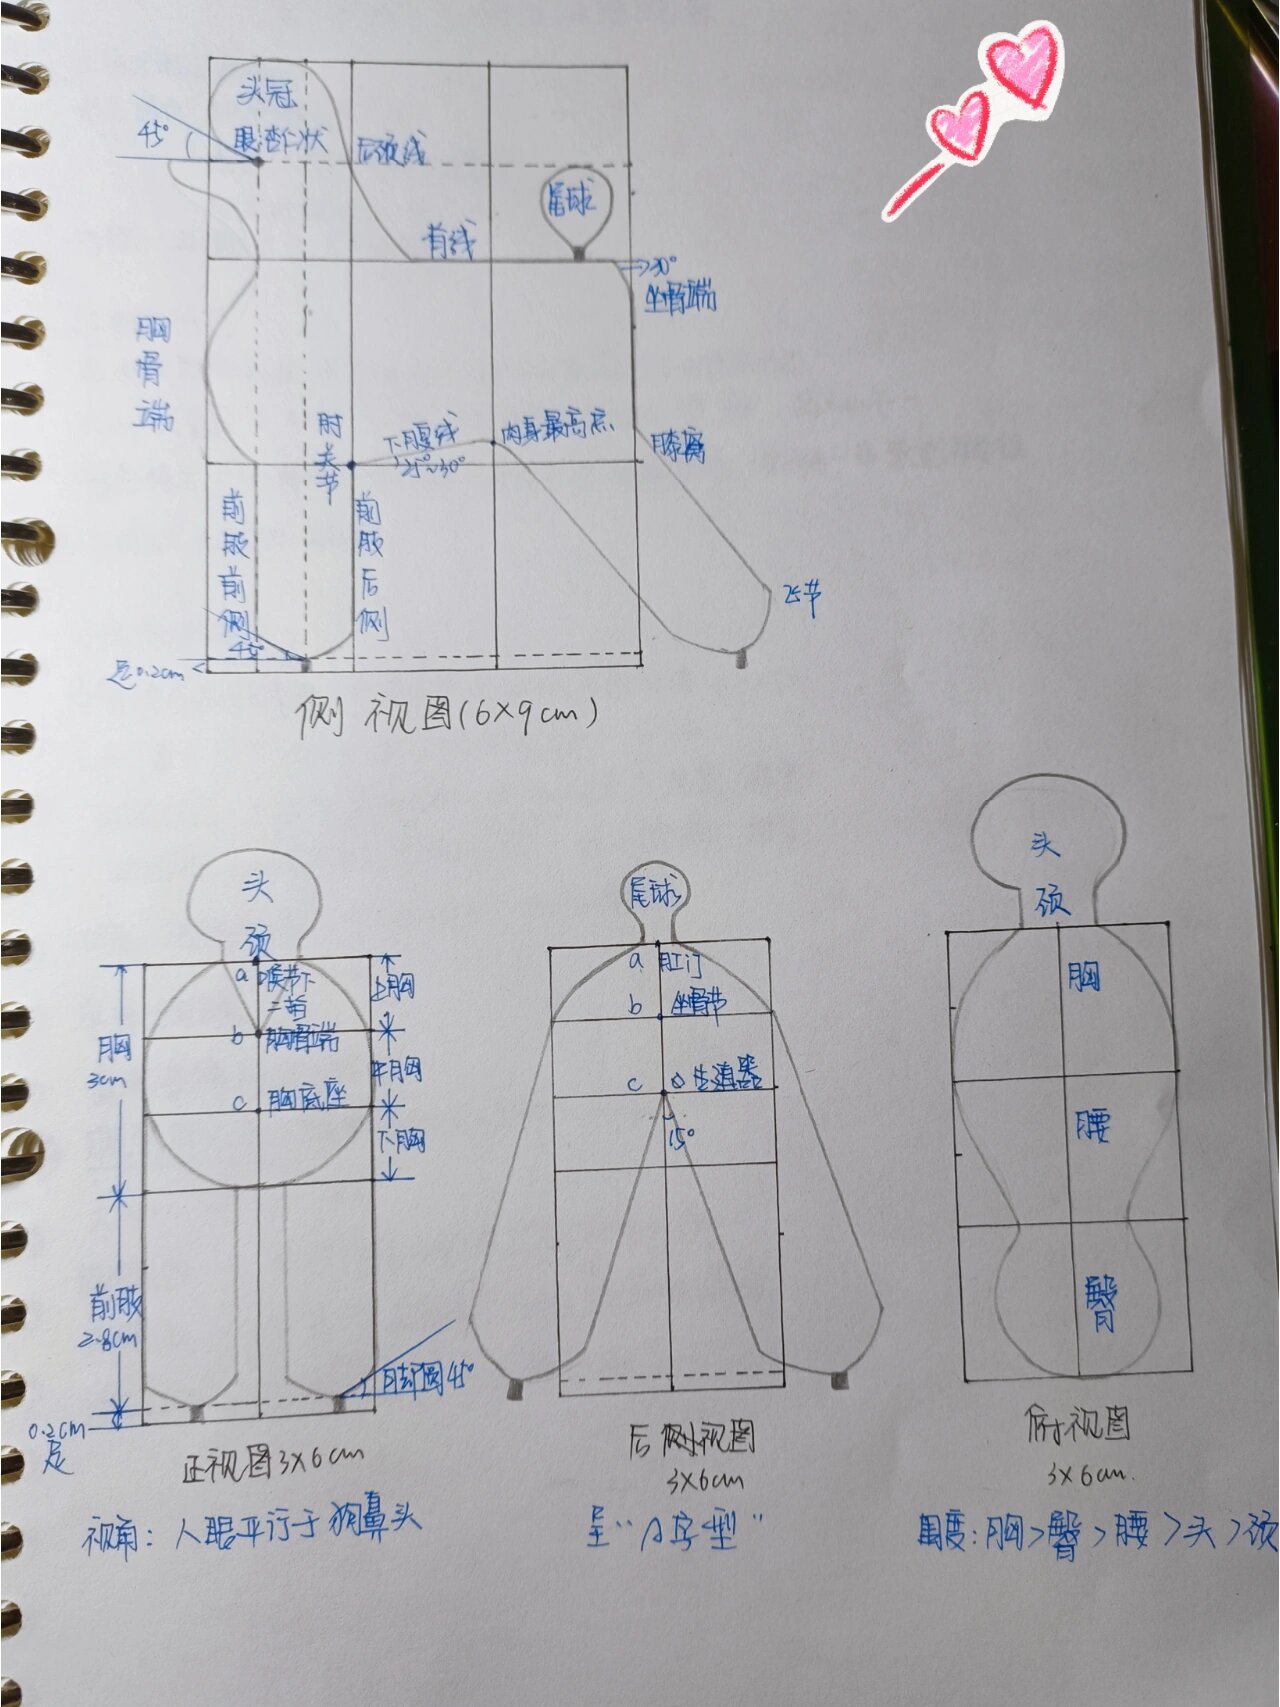 头冠
45°
眼杏仁状
后颈线
尾球
背线
30°
坐骨端
胸骨端
肘关节
下腹线
25°~30°
肉身最高点
膝窝
前肢前侧
前肢后侧
45°
飞节
足0.2cm
侧视图(6×9cm)
头
颈
a 喉节下
二指
b 胸骨端
c 胸底座
上胸
中胸
下胸
胸
3cm
前肢
2.8cm
脚圆45°
0.2cm
足
正视图3×6cm
视角：人眼平行于狗鼻头
尾球
a 肛门
b 坐骨节
c 生殖器
15°
后侧视图
3×6cm
呈“A字型”
头
颈
胸
腰
臀
俯视图
3×6cm.
围度：胸>臀>腰>头>颈